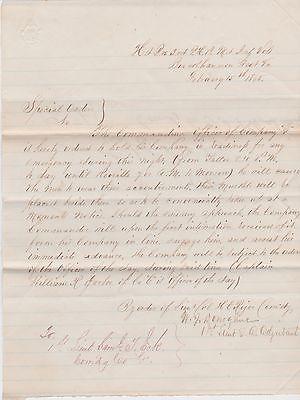 Hd Qrs 2nd P.H.B. Md Inf Vols
February 15th 186
Special Order
No
The Commanding Officer of Company
is hereby ordered to hold his Company in readiness for any
emergency during this night, (from Tattoo P. M.
to day until Reveille A. M. to morrow) He must
the men wear their accoutrements, their Muskets will be
placed beside them so as to conveniently take it at a
Moments Notice, Should the enemy approach the Company
Commander will upon the first information received of it,
form his Company in line engage him and resist his
immediate advance, the Company will be subject to the orders
of the Officer of the day during said time (Captain
William F. of Co Officer of the day)
By order of Lieut Col Comdg
1st Lieut & Adjutant
To
1st Lieut Saml T.
Comdg Co